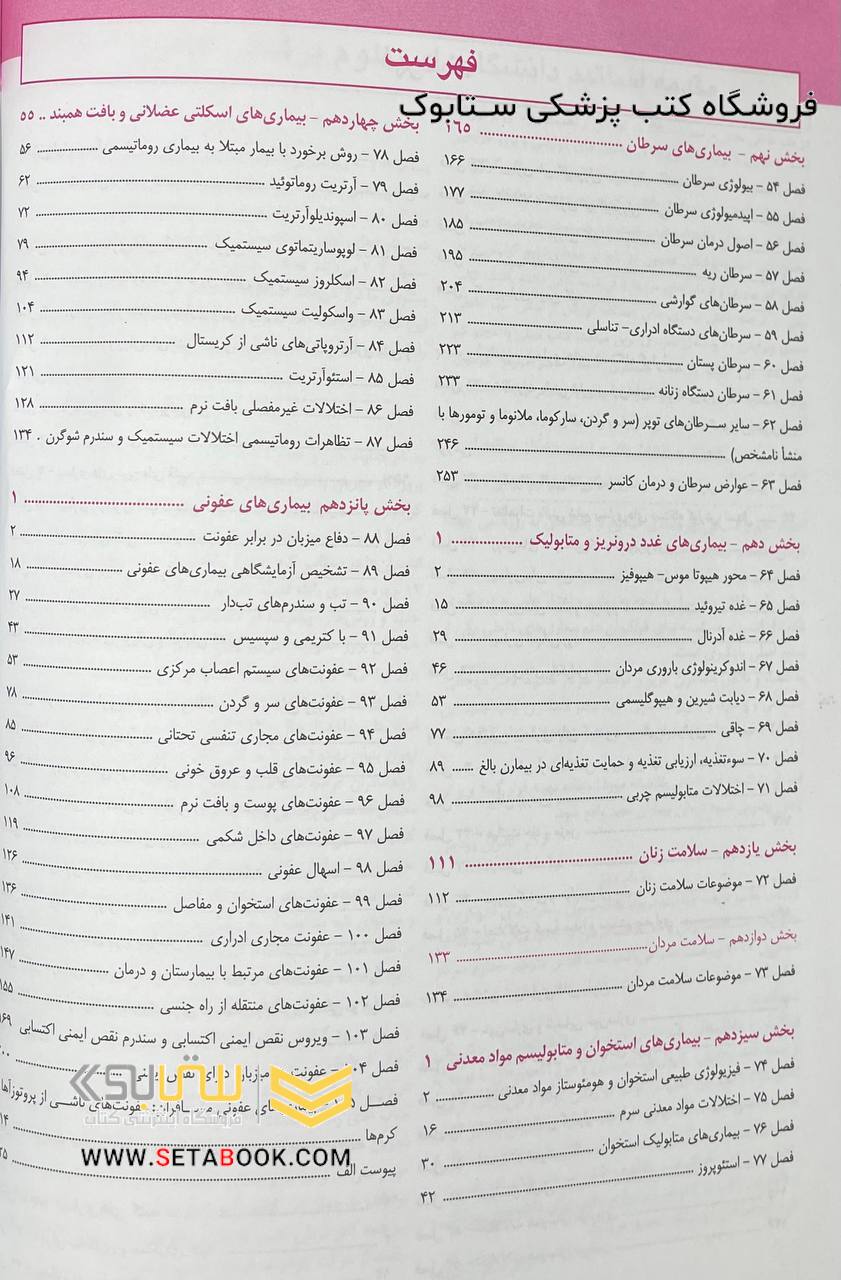 فهرست
فروشگاه کتب پزشکی ستابوک
بخش نهم - بیماری‌های سرطان ..... ۱۶۵
فصل ۵۴ - بیولوژی سرطان ..... ۱۶۶
فصل ۵۵ - اپیدمیولوژی سرطان ..... ۱۷۷
فصل ۵۶ - اصول درمان سرطان ..... ۱۸۵
فصل ۵۷ - سرطان ریه ..... ۱۹۵
فصل ۵۸ - سرطان‌های گوارشی ..... ۲۰۴
فصل ۵۹ - سرطان‌های دستگاه ادراری- تناسلی ..... ۲۱۳
فصل ۶۰ - سرطان پستان ..... ۲۲۳
فصل ۶۱ - سرطان دستگاه زنانه ..... ۲۳۳
فصل ۶۲ - سایر سـرطان‌های توپر (سر و گردن، سارکوما، ملانوما و تومورها با
منشأ نامشخص) ..... ۲۴۶
فصل ۶۳ - عوارض سرطان و درمان کانسر ..... ۲۵۳
بخش دهم - بیماری‌های غدد درون‌ریز و متابولیک ..... ۱
فصل ۶۴ - محور هیپوتا موس- هیپوفیز ..... ۲
فصل ۶۵ - غده تیروئید ..... ۱۵
فصل ۶۶ - غده آدرنال ..... ۲۹
فصل ۶۷ - اندوکرینولوژی باروری مردان ..... ۴۶
فصل ۶۸ - دیابت شیرین و هیپوگلیسمی ..... ۵۳
فصل ۶۹ - چاقی ..... ۷۷
فصل ۷۰ - سوءتغذیه، ارزیابی تغذیه و حمایت تغذیه‌ای در بیمارن بالغ ..... ۸۹
فصل ۷۱ - اختلالات متابولیسم چربی ..... ۹۸
بخش یازدهم - سلامت زنان ..... ۱۱۱
فصل ۷۲ - موضوعات سلامت زنان ..... ۱۱۲
بخش دوازدهم - سلامت مردان ..... ۱۳۳
فصل ۷۳ - موضوعات سلامت مردان ..... ۱۳۴
بخش سیزدهم - بیماری‌های استخوان و متابولیسم مواد معدنی ۱
فصل ۷۴ - فیزیولوژی طبیعی استخوان و هومئوستاز مواد معدنی ..... ۲
فصل ۷۵ - اختلالات مواد معدنی سرم ..... ۱۶
فصل ۷۶ - بیماری‌های متابولیک استخوان ..... ۳۰
فصل ۷۷ - استئوپروز ..... ۴۲
بخش چهاردهم - بیماری‌های اسکلتی عضلانی و بافت همبند .. ۵۵
فصل ۷۸ - روش برخورد با بیمار مبتلا به بیماری روماتیسمی ..... ۵۶
فصل ۷۹ - آرتریت روماتوئید ..... ۶۲
فصل ۸۰ - اسپوندیلوآرتریت ..... ۷۲
فصل ۸۱ - لوپوساریتماتوی سیستمیک ..... ۷۹
فصل ۸۲ - اسکلروز سیستمیک ..... ۹۴
فصل ۸۳ - واسکولیت سیستمیک ..... ۱۰۴
فصل ۸۴ - آرتروپاتی‌های ناشی از کریستال ..... ۱۱۲
فصل ۸۵ - استئوآرتریت ..... ۱۲۱
فصل ۸۶ - اختلالات غیرمفصلی بافت نرم ..... ۱۲۸
فصل ۸۷ - تظاهرات روماتیسمی اختلالات سیستمیک و سندرم شوگرن . ۱۳۴
بخش پانزدهم بیماری‌های عفونی ..... ۱
فصل ۸۸ - دفاع میزبان در برابر عفونت ..... ۲
فصل ۸۹ - تشخیص آزمایشگاهی بیماری‌های عفونی ..... ۱۸
فصل ۹۰ - تب و سندرم‌های تب‌دار ..... ۲۷
فصل ۹۱ - با کتریمی و سپسیس ..... ۴۳
فصل ۹۲ - عفونت‌های سیستم اعصاب مرکزی ..... ۵۳
فصل ۹۳ - عفونت‌های سر و گردن ..... ۷۸
فصل ۹۴ - عفونت‌های مجاری تنفسی تحتانی ..... ۸۵
فصل ۹۵ - عفونت‌های قلب و عروق خونی ..... ۹۶
فصل ۹۶ - عفونت‌های پوست و بافت نرم ..... ۱۰۸
فصل ۹۷ - عفونت‌های داخل شکمی ..... ۱۱۹
فصل ۹۸ - اسهال عفونی ..... ۱۲۶
فصل ۹۹ - عفونت‌های استخوان و مفاصل ..... ۱۳۶
فصل ۱۰۰ - عفونت مجاری ادراری ..... ۱۴۱
فصل ۱۰۱ - عفونت‌های مرتبط با بیمارستان و درمان ..... ۱۴۷
فصل ۱۰۲ - عفونت‌های منتقله از راه جنسی ..... ۱۵۵
فصل ۱۰۳ - ویروس نقص ایمنی اکتسابی و سندرم نقص ایمنی اکتسابی ۱۶۹
فصل ۱۰۴ - عفونت میزبان دارای نقص ایمنی .....
فصـل عفونی عفونت‌های ناشـی از پروتوزآها
کرم‌ها .....
پیوست الف .....
ستابوک
فروشگاه اینترنتی کتاب
WWW.SETABOOK.COM